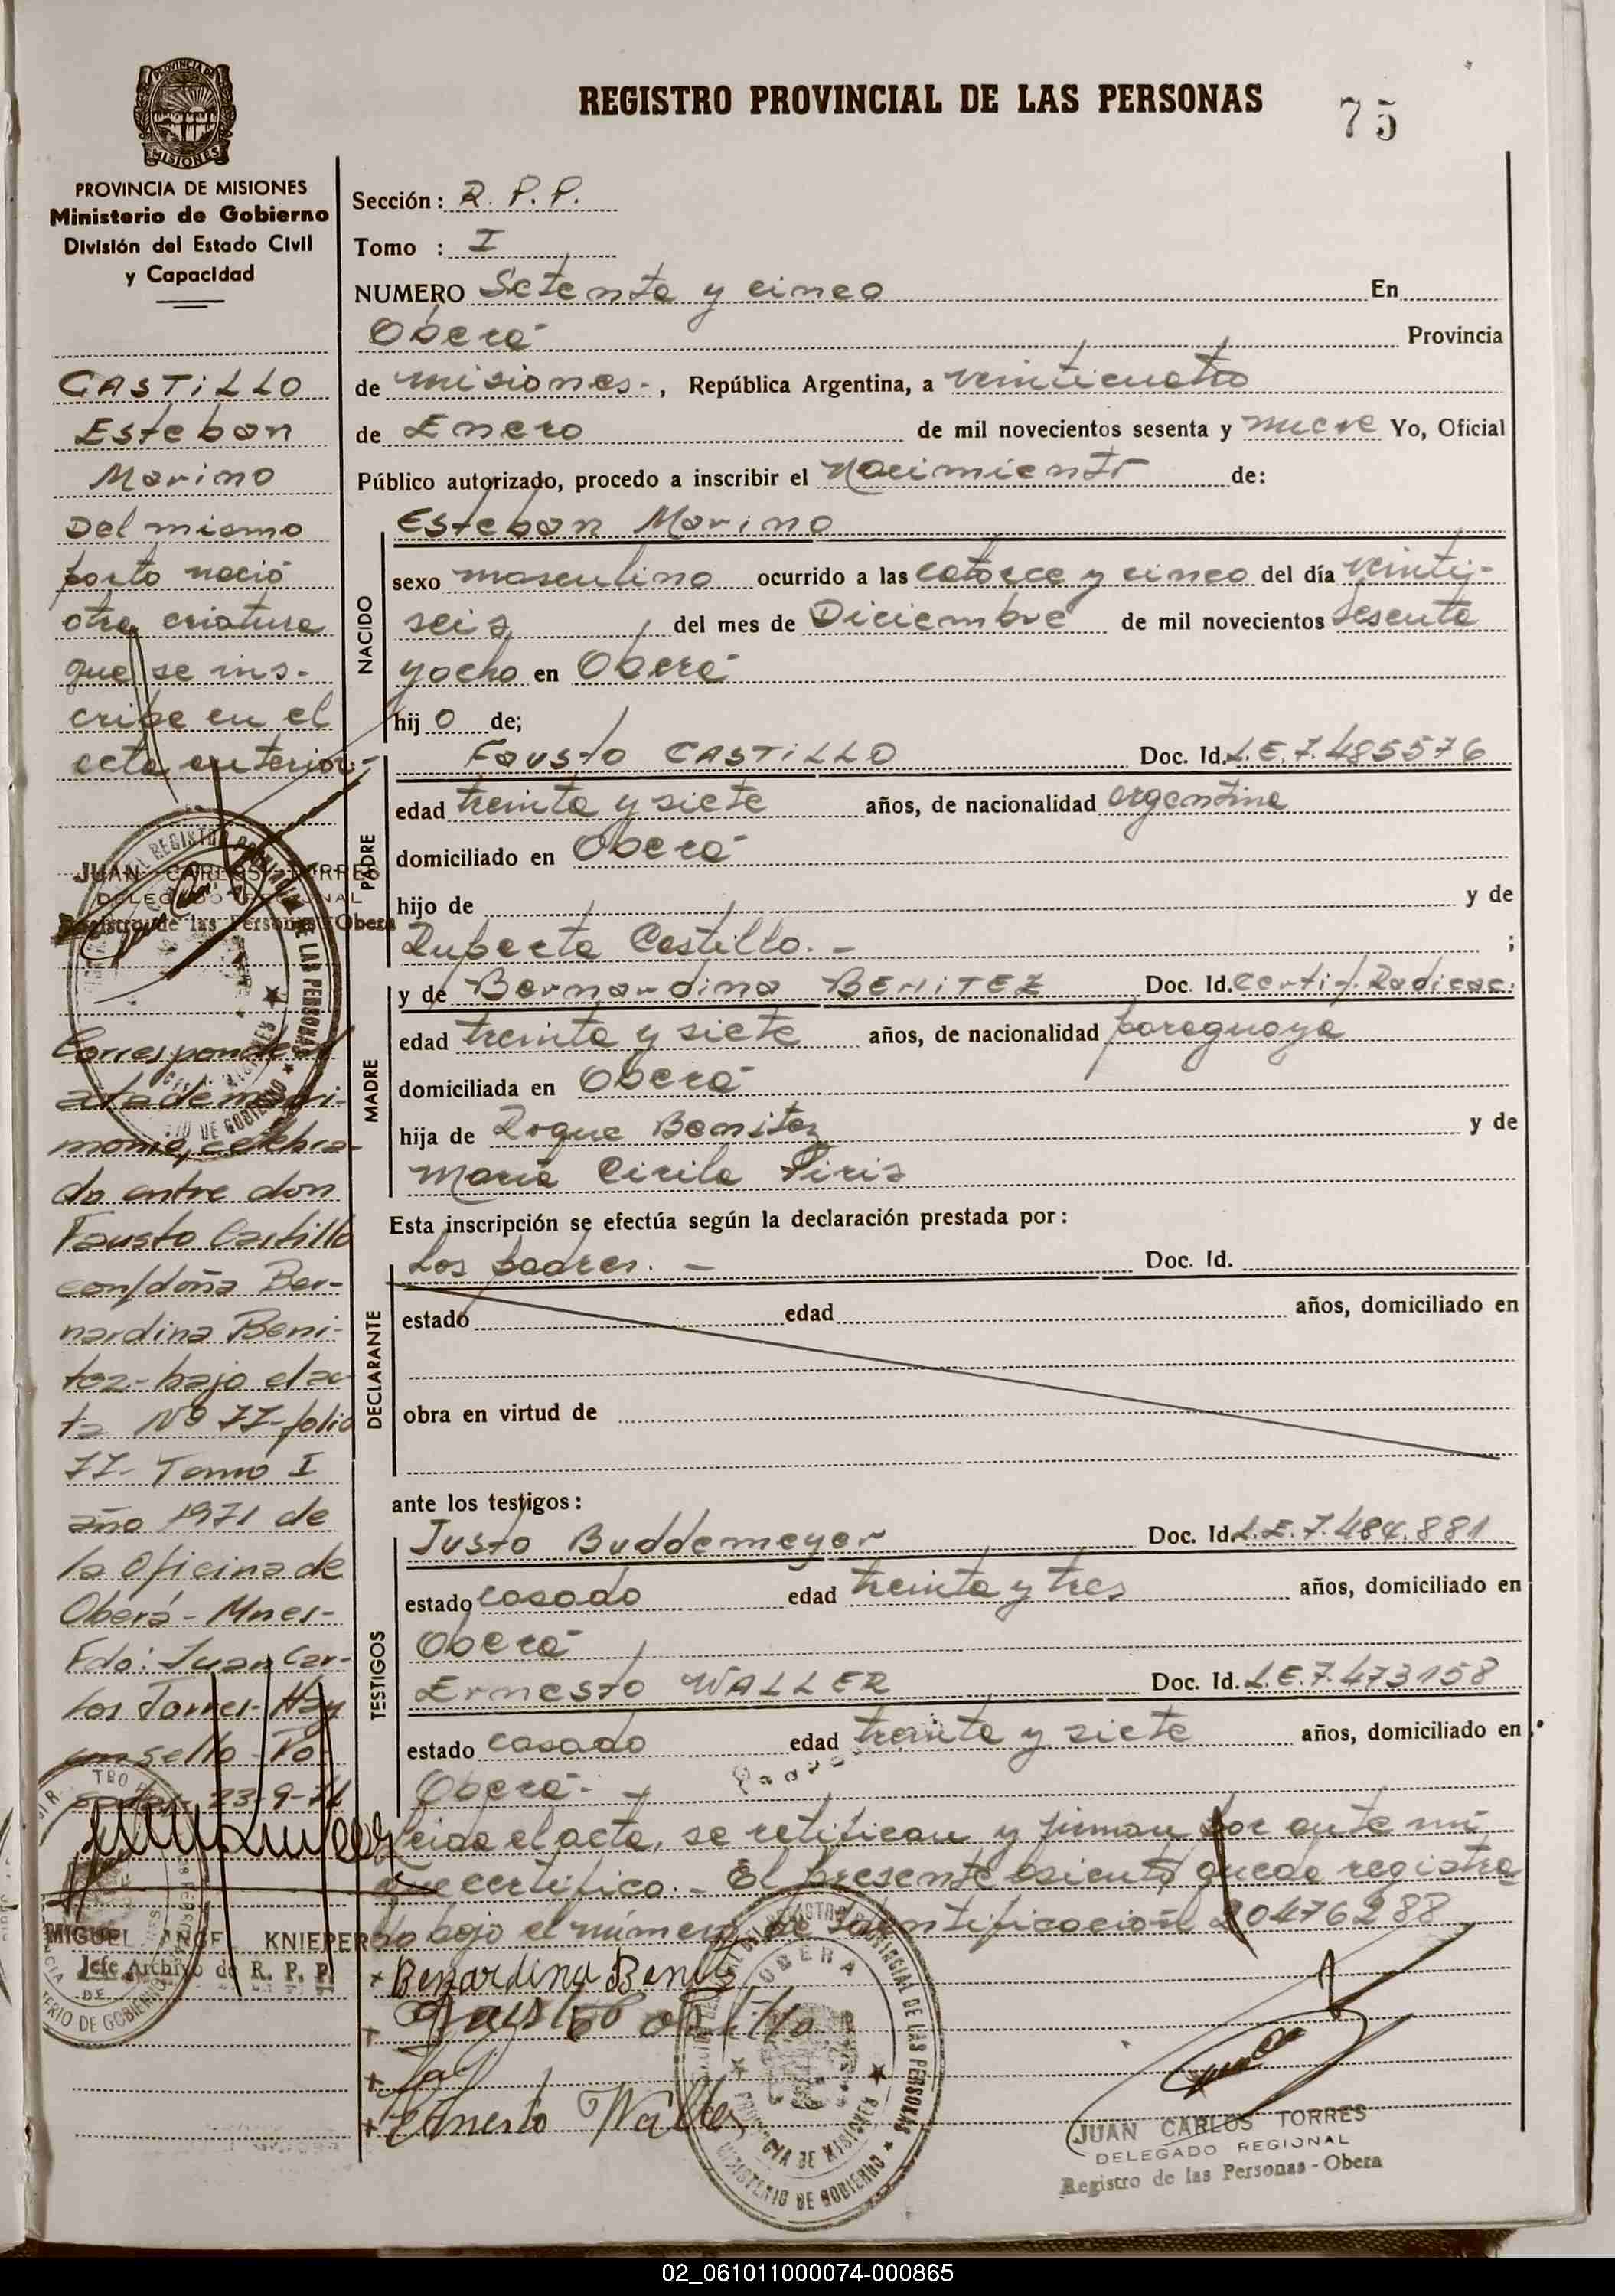 REGISTRO PROVINCIAL DE LAS PERSONAS
75
PROVINCIA DE MISIONES
Ministerio de Gobierno
División del Estado Civil
y Capacidad
CASTILLO
Esteban
Marino
Del mismo
parto nació
otra criatura
que se ins-
cribe en el
acta anterior.-
JUAN CARLOS TORRES
DELEGADO REGIONAL
Registro de las Personas - Obera
Corresponde al
acta de matri-
monio, celebra-
do entre don
Fausto Castillo
con/doña Ber-
nardina Beni-
tez - bajo el ac-
ta Nº 77 - folio
77 - Tomo I
año 1971 de
la Oficina de
Oberá - Mnes -
Fdo: Juan Car-
los Torres - Hay
un sello - Po-
sadas 23-9-71
MIGUEL ANGEL KNIEPER
Jefe Archivo de R. P. P.
Sección: R. P. P.
Tomo : I
NUMERO Setenta y cinco En
Oberá Provincia
de misiones.-, República Argentina, a veinticuatro
de Enero de mil novecientos sesenta y nueve Yo, Oficial
Público autorizado, procedo a inscribir el Nacimiento de:
Esteban Marino
NACIDO
sexo masculino ocurrido a las catorce y cinco del día veinti-
seis del mes de Diciembre de mil novecientos sesenta
y ocho en Oberá
hijo de;
PADRE
Fausto CASTILLO Doc. Id. L.E.7.485576
edad treinta y siete años, de nacionalidad argentina
domiciliado en Oberá
hijo de y de
Ruperta Castillo. - ;
MADRE
y de Bernardina BENITEZ Doc. Id. Certif. Radicac.
edad treinta y siete años, de nacionalidad paraguaya
domiciliada en Oberá
hija de Roque Benitez y de
María Cirila Piris
Esta inscripción se efectúa según la declaración prestada por:
DECLARANTE
Los padres. - Doc. Id.
estado edad años, domiciliado en
obra en virtud de
ante los testigos:
TESTIGOS
Justo Buddemeyer Doc. Id. L.E.7.484.881
estado casado edad treinta y tres años, domiciliado en
Oberá
Ernesto WALLER Doc. Id. L.E.7.473158
estado casado edad treinta y siete años, domiciliado en
Oberá. -
Leída el acta, se ratifican y firman por ante mí
que certifico. - El presente asiento queda registra-
do bajo el número de Identificación 20476288
+ Benardina Benitez
+ Fausto Castillo
+ Ernesto Waller
OBERA
REGISTRO PROVINCIAL DE LAS PERSONAS
PROVINCIA DE MISIONES
MINISTERIO DE GOBIERNO
JUAN CARLOS TORRES
DELEGADO REGIONAL
Registro de las Personas - Obera
02_061011000074-000865